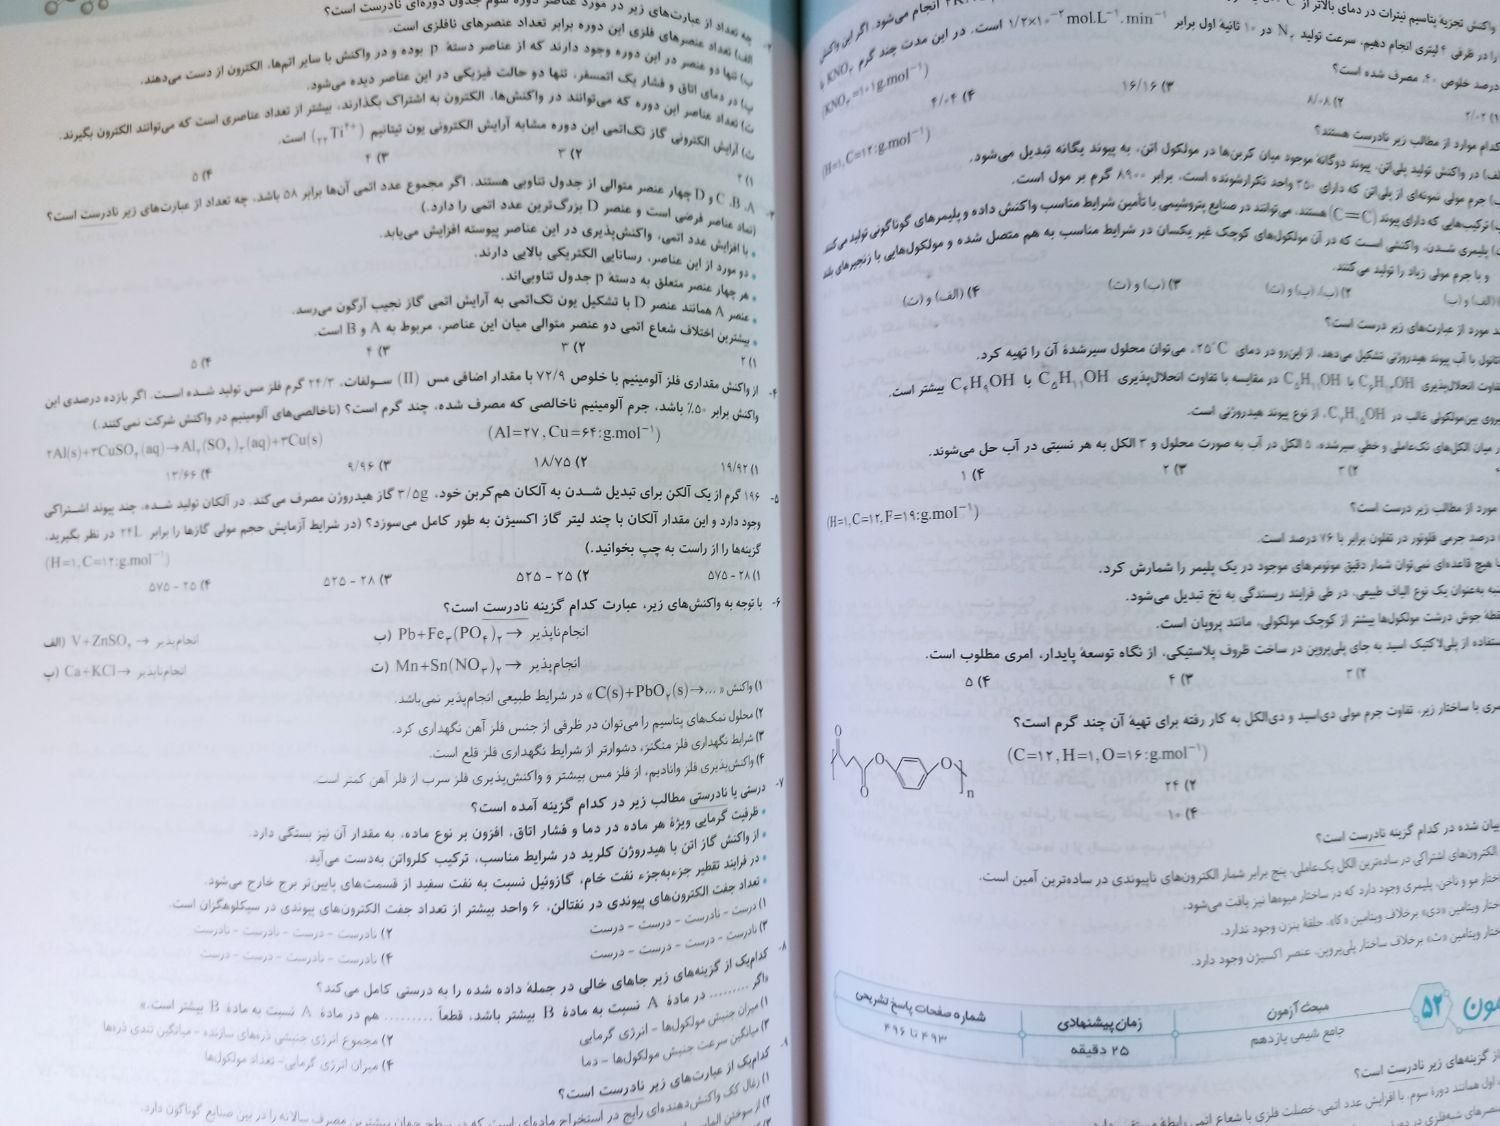 واکنش تجزیهٔ پتاسیم نیترات در دمای بالاتر از
را در ظرفی ۴ لیتری انجام دهیم، سرعت تولید N₂ در ۱۰ ثانیهٔ اول برابر ۱/۲×۱۰⁻² mol.L⁻¹.min⁻¹ است. در این مدت چند گرم KNO₃ با
درصد خلوص ۴۰، مصرف شده است؟ (KNO₃=۱۰۱g.mol⁻¹)
۱) ۲/۰۲ ۲) ۸/۰۸ ۳) ۱۶/۱۶ ۴) ۴/۰۴
کدام موارد از مطالب زیر نادرست هستند؟ (H=۱, C=۱۲:g.mol⁻¹)
الف) در واکنش تولید پلی‌اتن، پیوند دوگانهٔ موجود میان کربن‌ها در مولکول اتن، به پیوند یگانه تبدیل می‌شود.
ب) جرم مولی نمونه‌ای از پلی‌اتن که دارای ۳۵۰ واحد تکرارشونده است، برابر ۸۹۰۰ گرم بر مول است.
پ) ترکیب‌هایی که دارای پیوند (C=C) هستند، می‌توانند در صنایع پتروشیمی با تأمین شرایط مناسب واکنش داده و پلیمرهای گوناگونی تولید می‌کنند.
ت) پلیمری شدن، واکنشی است که در آن مولکول‌های کوچک غیر یکسان در شرایط مناسب به هم متصل شده و مولکول‌هایی با زنجیرهای بلند
و با جرم مولی زیاد را تولید می‌کنند.
۱) (الف) و (ب) ۲) (ب)، (پ) و (ت) ۳) (ب) و (ت) ۴) (الف) و (ت)
چند مورد از عبارت‌های زیر درست است؟
اتانول با آب پیوند هیدروژنی تشکیل می‌دهد، از این‌رو در دمای ۲۵°C، می‌توان محلول سیرشدهٔ آن را تهیه کرد.
تفاوت انحلال‌پذیری با C₅H₁₁OH در مقایسه با تفاوت انحلال‌پذیری C₅H₁₁OH با C₄H₉OH بیشتر است.
نیروی بین‌مولکولی غالب در C₇H₁₅OH، از نوع پیوند هیدروژنی است.
در میان الکل‌های تک‌عاملی و خطی سیرشده، ۵ الکل در آب به صورت محلول و ۳ الکل به هر نسبتی در آب حل می‌شوند.
۲) ۳ ۳) ۲ ۴) ۱
مورد از مطالب زیر درست است؟ (H=۱, C=۱۲, F=۱۹:g.mol⁻¹)
درصد جرمی فلوئور در تفلون برابر با ۷۶ درصد است.
با هیچ قاعده‌ای نمی‌توان شمار دقیق مونومرهای موجود در یک پلیمر را شمارش کرد.
پنبه به‌عنوان یک نوع الیاف طبیعی، در طی فرایند ریسندگی به نخ تبدیل می‌شود.
نقطهٔ جوش درشت مولکول‌ها بیشتر از کوچک مولکولی، مانند پروپان است.
استفاده از پلی‌لاکتیک اسید به جای پلی‌پروپن در ساخت ظروف پلاستیکی، از نگاه توسعهٔ پایدار، امری مطلوب است.
۲) ۳ ۳) ۴ ۴) ۵
با ساختار زیر، تفاوت جرم مولی دی‌اسید و دی‌الکل به کار رفته برای تهیهٔ آن چند گرم است؟
(C=۱۲, H=۱, O=۱۶:g.mol⁻¹)
O O O O n
۲) ۲۴
۴) ۱۰
بیان شده در کدام گزینه نادرست است؟
الکترون‌های اشتراکی در ساده‌ترین الکل یک‌عاملی، پنج برابر شمار الکترون‌های ناپیوندی در ساده‌ترین آمین است.
ساختار مو و ناخن، پلیمری وجود دارد که در ساختار میوه‌ها نیز یافت می‌شود.
ساختار ویتامین «دی» برخلاف ویتامین «کا»، حلقهٔ بنزن وجود ندارد.
ساختار ویتامین «ث» برخلاف ساختار پلی‌پروپن، عنصر اکسیژن وجود دارد.
۵۲ مبحث آزمون زمان پیشنهادی شماره صفحات پاسخ تشریحی
جامع شیمی یازدهم ۲۵ دقیقه ۴۹۳ تا ۴۹۶
از گزینه‌های زیر نادرست است؟
اول همانند دورهٔ سوم، با افزایش عدد اتمی، خصلت فلزی با شعاع اتمی رابطهٔ
۲- چه تعداد از عبارت‌های زیر در مورد عناصر دورهٔ سوم جدول دوره‌ای نادرست است؟
الف) تعداد عنصرهای فلزی این دوره برابر تعداد عنصرهای نافلزی است.
ب) تنها دو عنصر در این دوره وجود دارند که از عناصر دستهٔ p بوده و در واکنش با سایر اتم‌ها، الکترون از دست می‌دهند.
پ) در دمای اتاق و فشار یک اتمسفر، تنها دو حالت فیزیکی در این عناصر دیده می‌شود.
ت) تعداد عناصر این دوره که می‌توانند در واکنش‌ها، الکترون به اشتراک بگذارند، بیشتر از تعداد عناصری است که می‌توانند الکترون بگیرند.
ث) آرایش الکترونی گاز تک‌اتمی این دوره مشابه آرایش الکترونی یون تیتانیم (₂₂Ti⁴⁺) است.
۱) ۲ ۲) ۳ ۳) ۴ ۴) ۵
۳- A، B، C و D چهار عنصر متوالی از جدول تناوبی هستند. اگر مجموع عدد اتمی آن‌ها برابر ۵۸ باشد، چه تعداد از عبارت‌های زیر نادرست است؟
(نماد عناصر فرضی است و عنصر D بزرگ‌ترین عدد اتمی را دارد.)
• با افزایش عدد اتمی، واکنش‌پذیری در این عناصر پیوسته افزایش می‌یابد.
• دو مورد از این عناصر، رسانایی الکتریکی بالایی دارند.
• هر چهار عنصر متعلق به دستهٔ p جدول تناوبی‌اند.
• عنصر A همانند عنصر D با تشکیل یون تک‌اتمی به آرایش اتمی گاز نجیب آرگون می‌رسد.
• بیشترین اختلاف شعاع اتمی دو عنصر متوالی میان این عناصر، مربوط به A و B است.
۱) ۲ ۲) ۳ ۳) ۴ ۴) ۵
۴- از واکنش مقداری فلز آلومینیم با خلوص ۷۲/۹ با مقدار اضافی مس (II) سولفات، ۲۴/۳ گرم فلز مس تولید شده است. اگر بازده درصدی این
واکنش برابر ۵۰٪ باشد، جرم آلومینیم ناخالصی که مصرف شده، چند گرم است؟ (ناخالصی‌های آلومینیم در واکنش شرکت نمی‌کنند.)
(Al=۲۷, Cu=۶۴:g.mol⁻¹) ۲Al(s)+۳CuSO₄(aq)→Al₂(SO₄)₃(aq)+۳Cu(s)
۱) ۱۹/۹۲ ۲) ۱۸/۷۵ ۳) ۹/۹۶ ۴) ۱۳/۶۶
۵- ۱۹۶ گرم از یک آلکن برای تبدیل شدن به آلکان هم‌کربن خود، ۳/۵g گاز هیدروژن مصرف می‌کند. در آلکان تولید شده، چند پیوند اشتراکی
وجود دارد و این مقدار آلکان با چند لیتر گاز اکسیژن به طور کامل می‌سوزد؟ (در شرایط آزمایش حجم مولی گازها را برابر ۲۴L در نظر بگیرید،
گزینه‌ها را از راست به چپ بخوانید.) (H=۱, C=۱۲:g.mol⁻¹)
۱) ۲۸ - ۵۷۵ ۲) ۲۵ - ۵۲۵ ۳) ۲۸ - ۵۲۵ ۴) ۲۵ - ۵۷۵
۶- با توجه به واکنش‌های زیر، عبارت کدام گزینه نادرست است؟
الف) V+ZnSO₄ → انجام‌پذیر ب) Pb+Fe₃(PO₄)₂ → انجام‌ناپذیر
پ) Ca+KCl → انجام‌ناپذیر ت) Mn+Sn(NO₃)₂ → انجام‌پذیر
۱) واکنش «C(s)+PbO₂(s)→...» در شرایط طبیعی انجام‌پذیر نمی‌باشد.
۲) محلول نمک‌های پتاسیم را می‌توان در ظرفی از جنس فلز آهن نگهداری کرد.
۳) شرایط نگهداری فلز منگنز، دشوارتر از شرایط نگهداری فلز قلع است.
۴) واکنش‌پذیری فلز وانادیم، از فلز مس بیشتر و واکنش‌پذیری فلز سرب از فلز آهن کمتر است.
۷- درستی یا نادرستی مطالب زیر در کدام گزینه آمده است؟
• ظرفیت گرمایی ویژهٔ هر ماده در دما و فشار اتاق، افزون بر نوع ماده، به مقدار آن نیز بستگی دارد.
• از واکنش گاز اتن با هیدروژن کلرید در شرایط مناسب، ترکیب کلرواتن به‌دست می‌آید.
• در فرایند تقطیر جزءبه‌جزء نفت خام، گازوئیل نسبت به نفت سفید از قسمت‌های پایین‌تر برج خارج می‌شود.
• تعداد جفت الکترون‌های پیوندی در نفتالن، ۶ واحد بیشتر از تعداد جفت الکترون‌های پیوندی در سیکلوهگزان است.
۱) درست - نادرست - درست - درست ۲) نادرست - درست - نادرست - نادرست
۳) نادرست - درست - درست - درست ۴) نادرست - نادرست - درست - درست
۸- کدام‌یک از گزینه‌های زیر جاهای خالی در جملهٔ داده شده را به درستی کامل می‌کند؟
«اگر ......... در مادهٔ A نسبت به مادهٔ B بیشتر باشد، قطعاً ......... هم در مادهٔ A نسبت به مادهٔ B بیشتر است.»
۱) میزان جنبش مولکول‌ها - انرژی گرمایی ۲) مجموع انرژی جنبشی ذره‌های سازنده - میانگین تندی ذره‌ها
۳) میانگین سرعت جنبش مولکول‌ها - دما ۴) میزان انرژی گرمایی - تعداد مولکول‌ها
۹- کدام‌یک از عبارت‌های زیر نادرست است؟
۱) زغال کک واکنش‌دهنده‌ای رایج در استخراج ماده‌ای است که در سطح جهان بیشترین مصرف سالانه را در بین صنایع گوناگون دارد.
۲) از سوختن